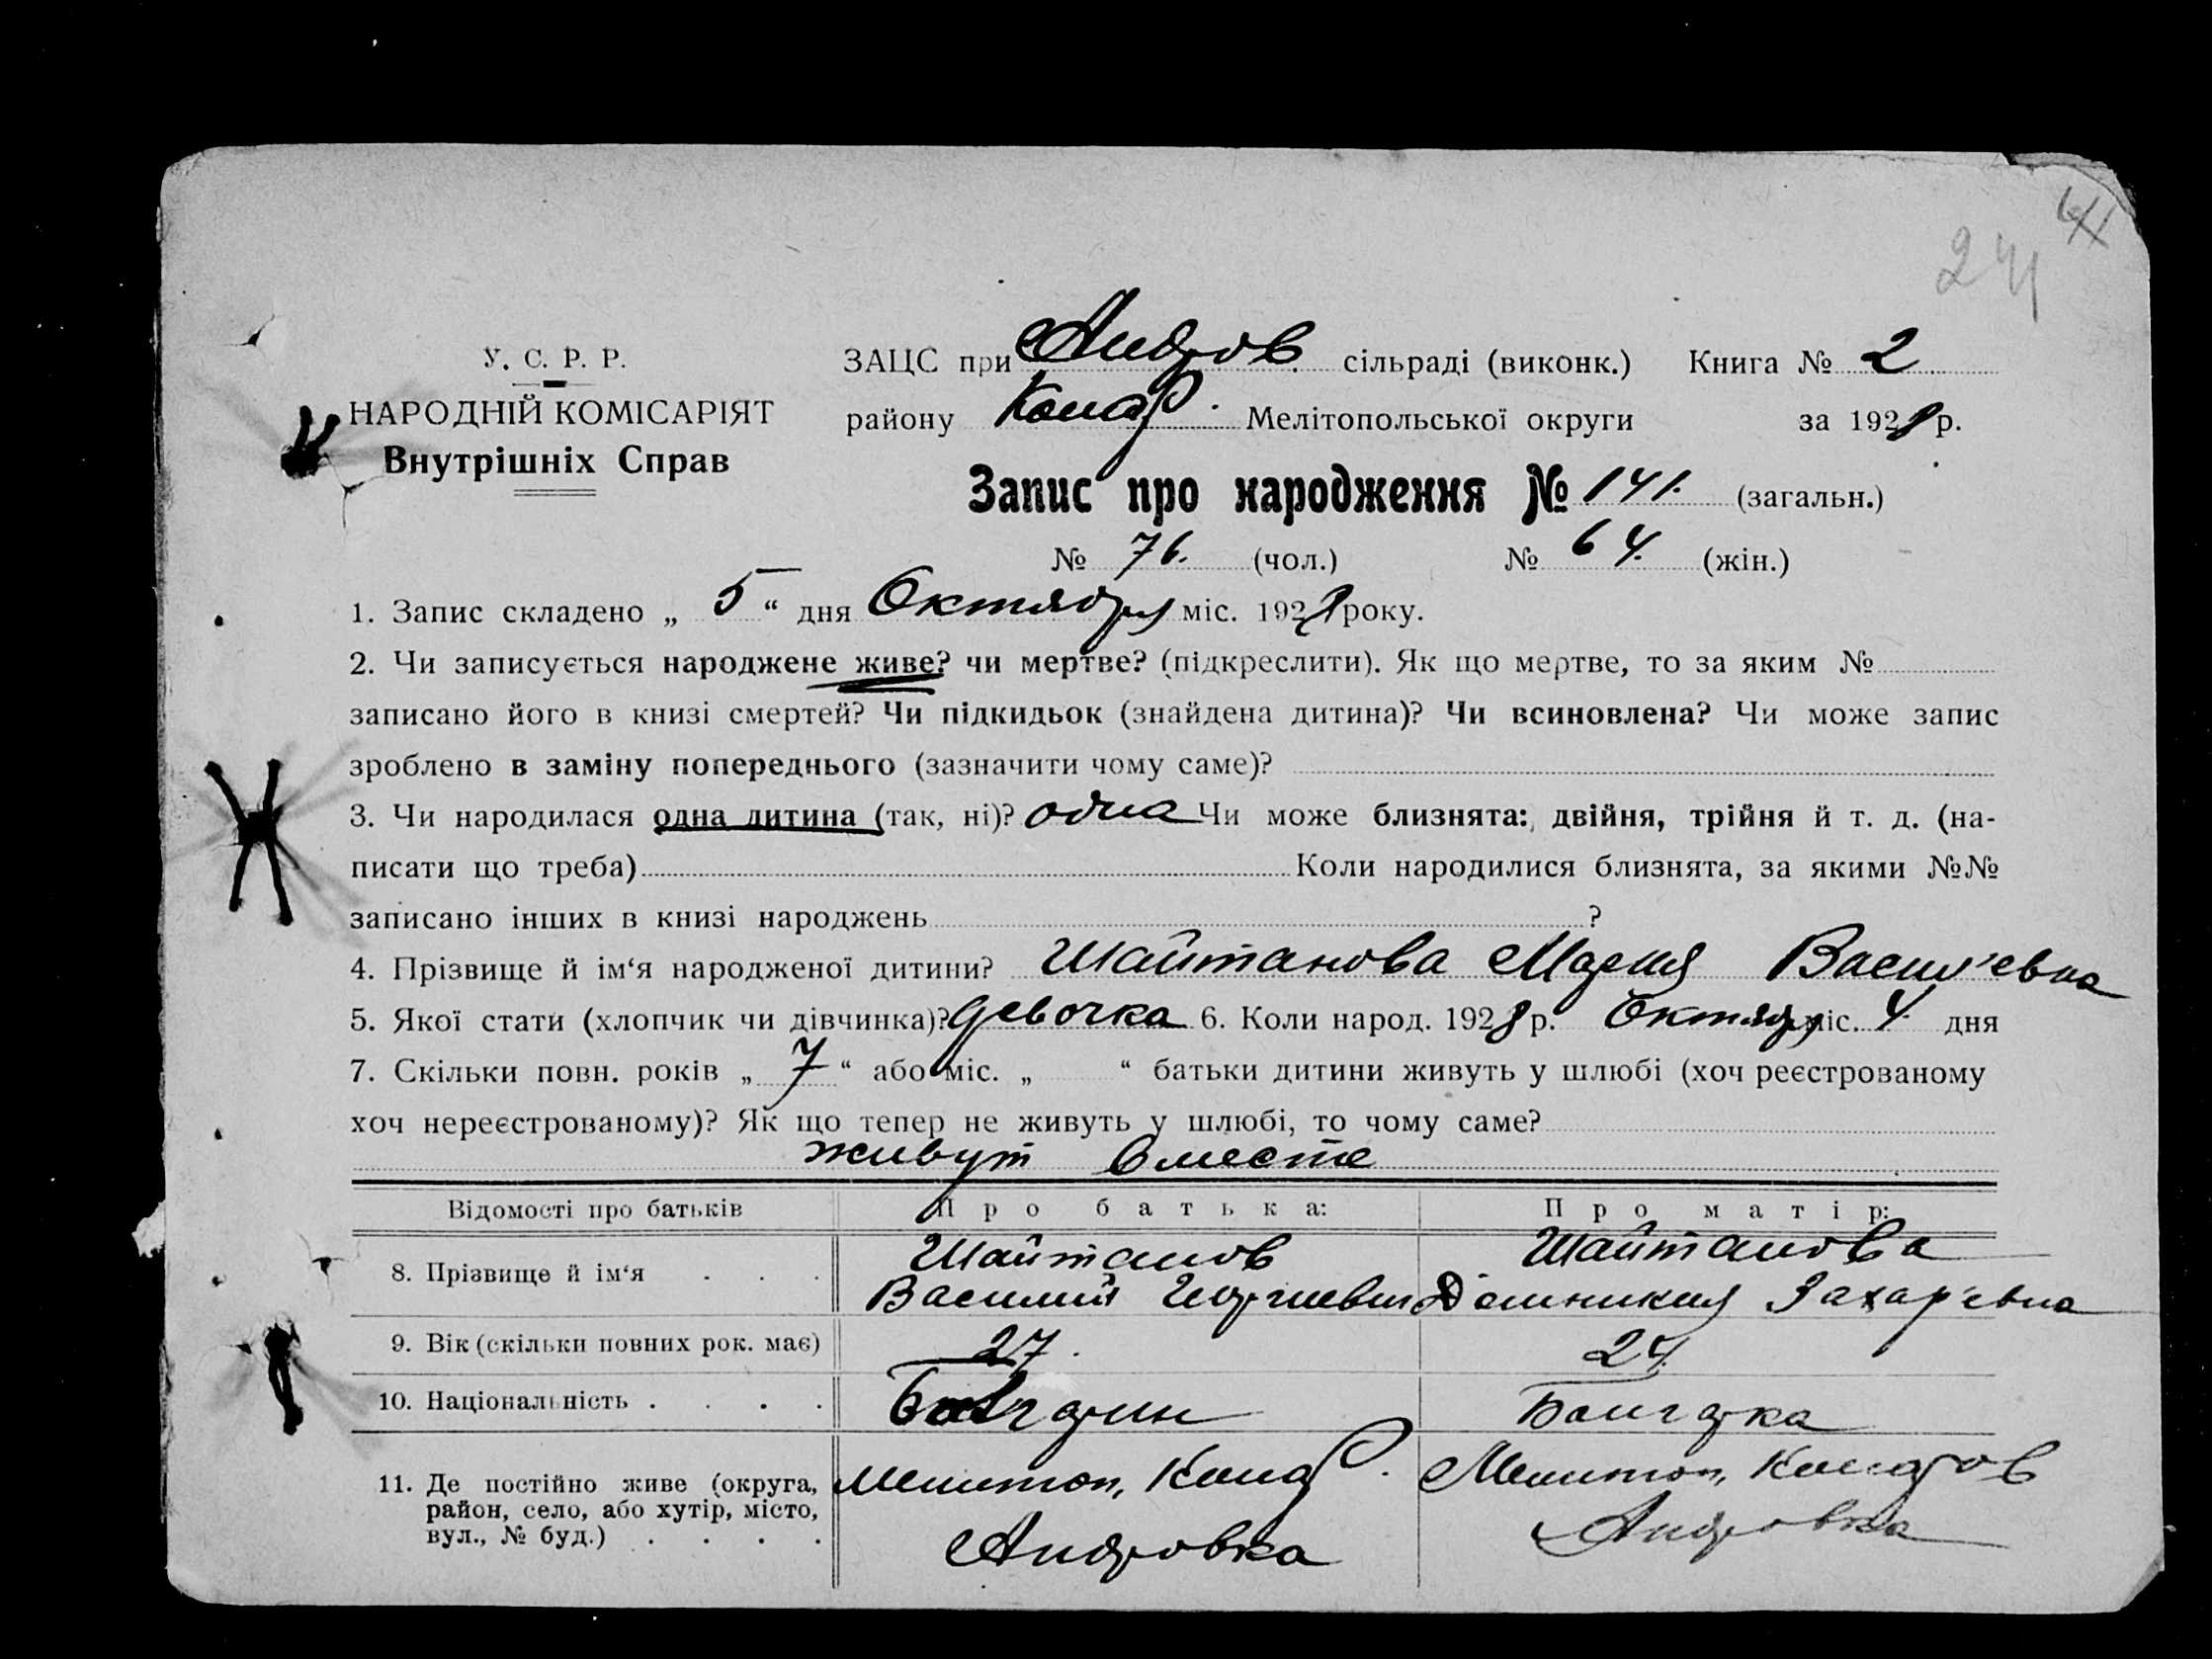 241
У. С. Р. Р.
НАРОДНІЙ КОМІСАРІЯТ
Внутрішніх Справ
ЗАЦС при Андров. сільраді (виконк.) Книга № 2
району Комар. Мелітопольської округи за 1928 р.
Запис про народження № 141. (загальн.)
№ 76. (чол.) № 64. (жін.)
1. Запис складено „ 5 “ дня Октября міс. 1928 року.
2. Чи записується народжене живе? чи мертве? (підкреслити). Як що мертве, то за яким №
записано його в книзі смертей? Чи підкидьок (знайдена дитина)? Чи всиновлена? Чи може запис
зроблено в заміну попереднього (зазначити чому саме)?
3. Чи народилася одна дитина (так, ні)? одна Чи може близнята: двійня, трійня й т. д. (на-
писати що треба) Коли народилися близнята, за якими №№
записано інших в книзі народжень ?
4. Прізвище й ім‘я народженої дитини? Шайтанова Мария Васил'евна
5. Якої стати (хлопчик чи дівчинка)? девочка 6. Коли народ. 1928 р. Октября міс. 4 дня
7. Скільки повн. років „ 7 “ або міс. „ “ батьки дитини живуть у шлюбі (хоч реєстрованому
хоч нереєстрованому)? Як що тепер не живуть у шлюбі, то чому саме?
живут вместе
Відомості про батьків Про батька: Про матір:
8. Прізвище й ім‘я . . . Шайтанов Шайтанова
Василий Георгиевич Домникия Захар'евна
9. Вік (скільки повних рок. має) 27. 24.
10. Національність . . . . Болгарин Болгарка
11. Де постійно живе (округа, Мелитоп, Комар. Мелитоп, Комаров
район, село, або хутір, місто,
вул., № буд.) . . . . Андровка Андровка